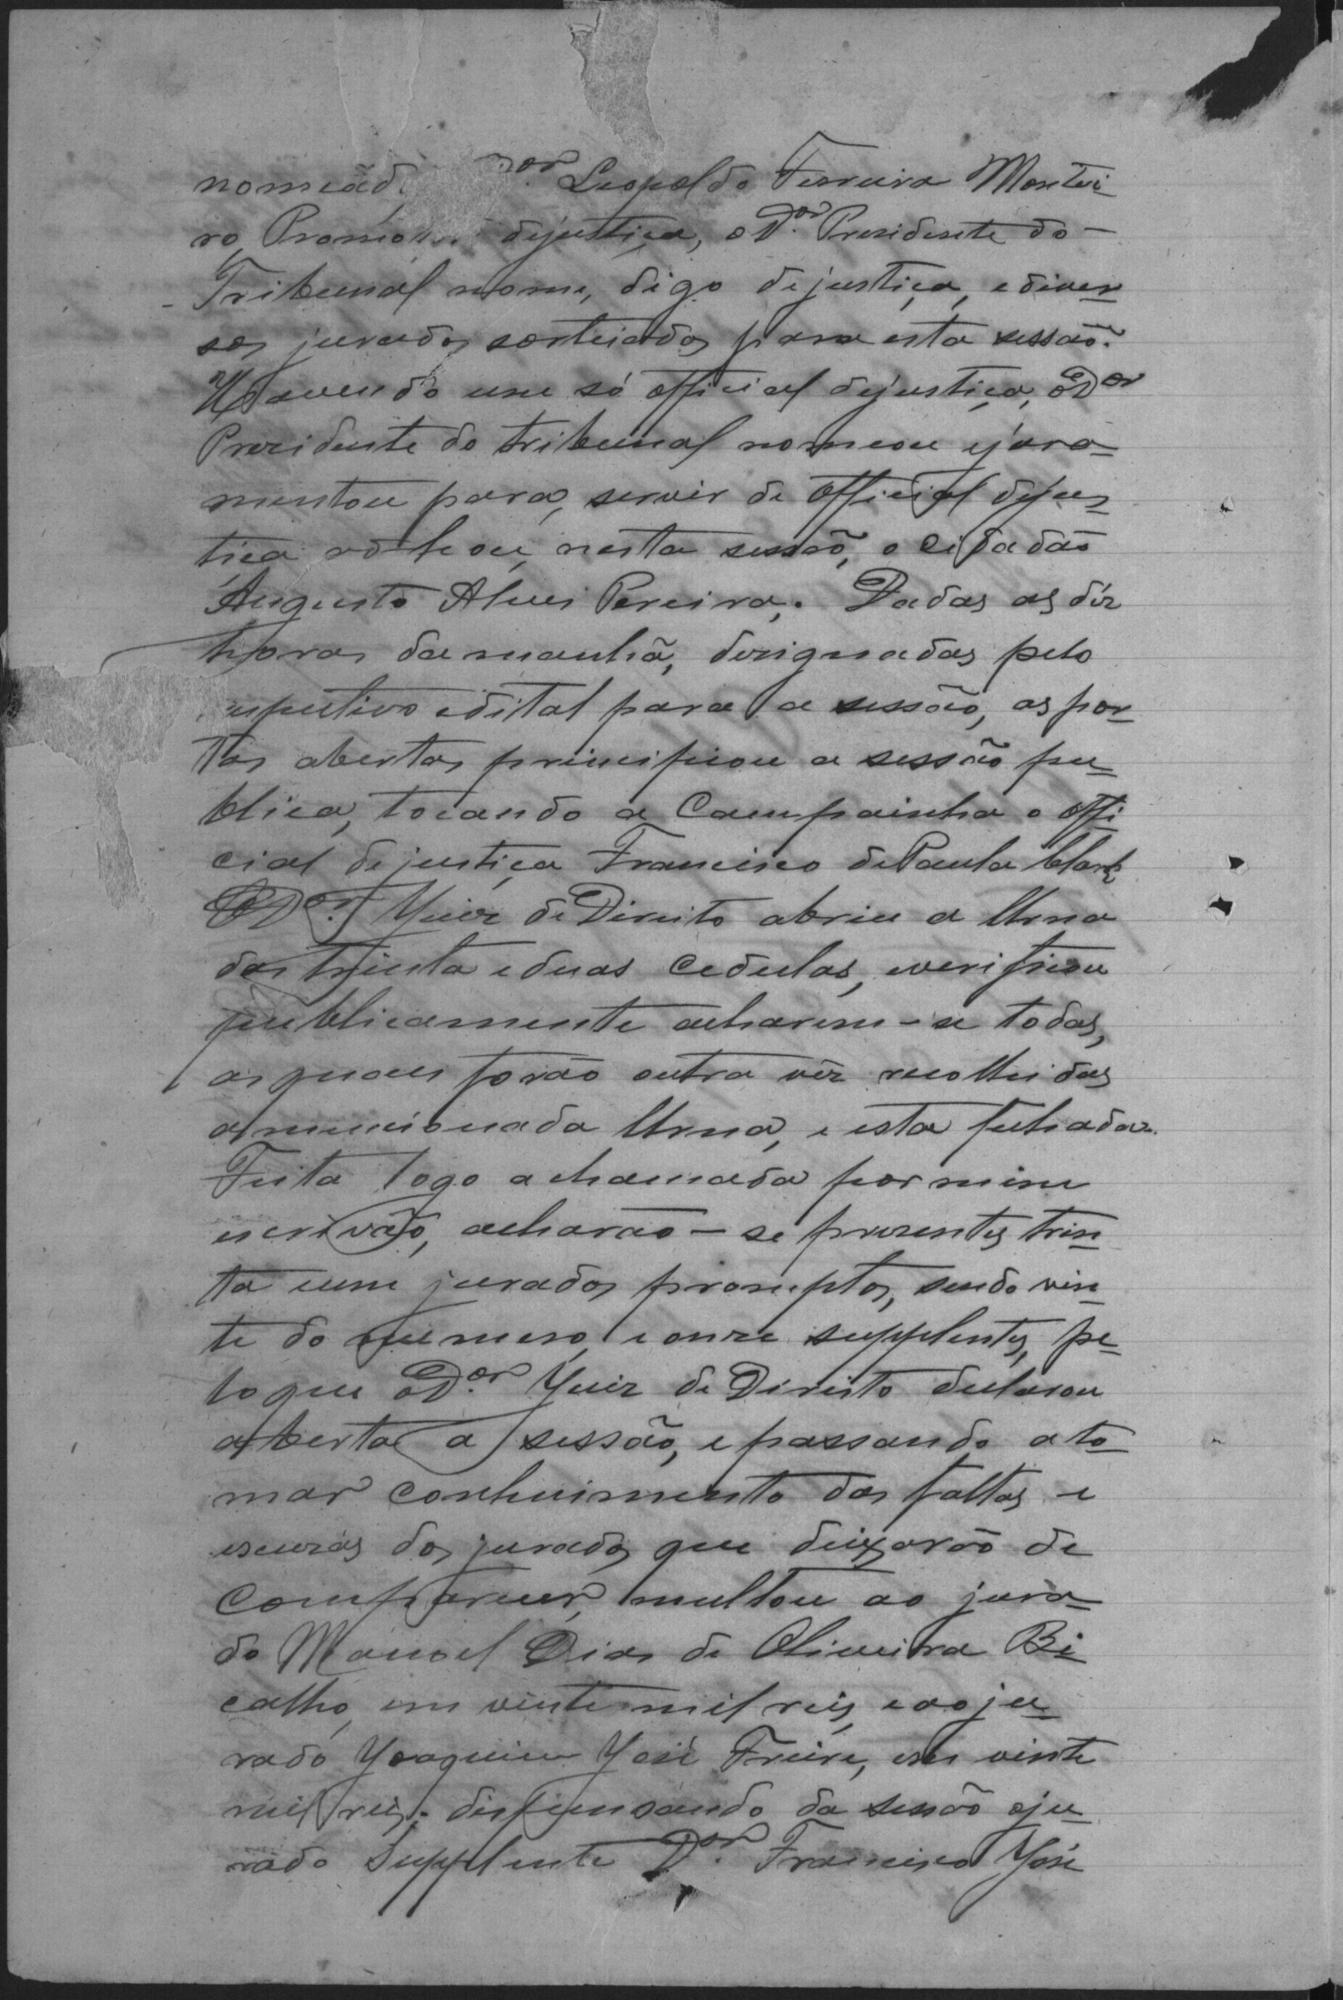 nomeado Dor. Leopoldo Ferreira Montei-
ro, Promotor dejustiça, o Dor. Presidente do
Tribunal nome, digo dejustiça, ediver-
sos jurados sorteiados para esta sessão.
Havendo um só official dejustiça, o Dor
Prezidente do tribunal nomeou ejura-
mentou para servir de official dejus-
tiça nesta sessão, o cidadão
Augusto Alves Pereira. Dadas as déz
horas damanhã, designadas pelo
respectivo edital para a sessão, as por-
tas abertas principiou a sessão pu-
blica, tocando a Campainha o offi-
cial dejustiça Francisco dePaula
O Dor. Juiz deDireito abriu a Urna
das trinta eduas cedulas, everificou
publicamente acharem-se todas,
as quaes forão outra vêz recolhidas
amencionada Urna, e esta fechada.
Feita logo achamada por mim
escrivão, acharão-se presentes trin-
ta eum jurados promptos, sendo vin-
te do numero, eonze supplentes, pe-
loque o Dor. Juiz de Direito declarou
aberta a sessão, epassando ato-
mar conhecimento das faltas e
escuzas dos jurados que deixarão de
Comparecer, multou ao jura-
do Manoel Dias de Oliveira Bi-
calho, em vinte mil reis, eao ju-
rado Joaquim José Freire, em vinte
mil reis. dispensando da sessão oju-
rado Supplente Dor. Francisco José